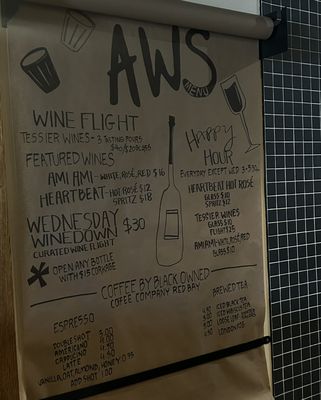 AWS
MENU
WINE FLIGHT
TESSIER WINES - 3 TASTING POURS
FEATURED WINES
AMI AMI - WHITE, ROSÉ, RED $16
HEARTBEAT - HOT ROSÉ $12
SPRITZ $18
WEDNESDAY
WINEDOWN $30
CURATED WINE FLIGHT
* OPEN ANY BOTTLE
WITH $15 CORKAGE
Happy
Hour
EVERYDAY EXCEPT WED 3-5:30
HEARTBEAT HOT ROSÉ
GLASS $10
SPRITZ $12
TESSIER WINES
GLASS $10
FLIGHT $25
AMI AMI - WHITE, ROSÉ, RED
GLASS $10
COFFEE BY BLACK OWNED
COFFEE COMPANY RED BAY
ESPRESSO
DOUBLE SHOT 3.00
AMERICANO 4.00
CAPPUCCINO
LATTE
VANILLA, OAT, ALMOND, HONEY 0.75
ADD SHOT 1.00
BREWED TEA
ICED BLACK TEA
ICED HIBISCUS TEA
LOOSE LEAF
LONDON FOG